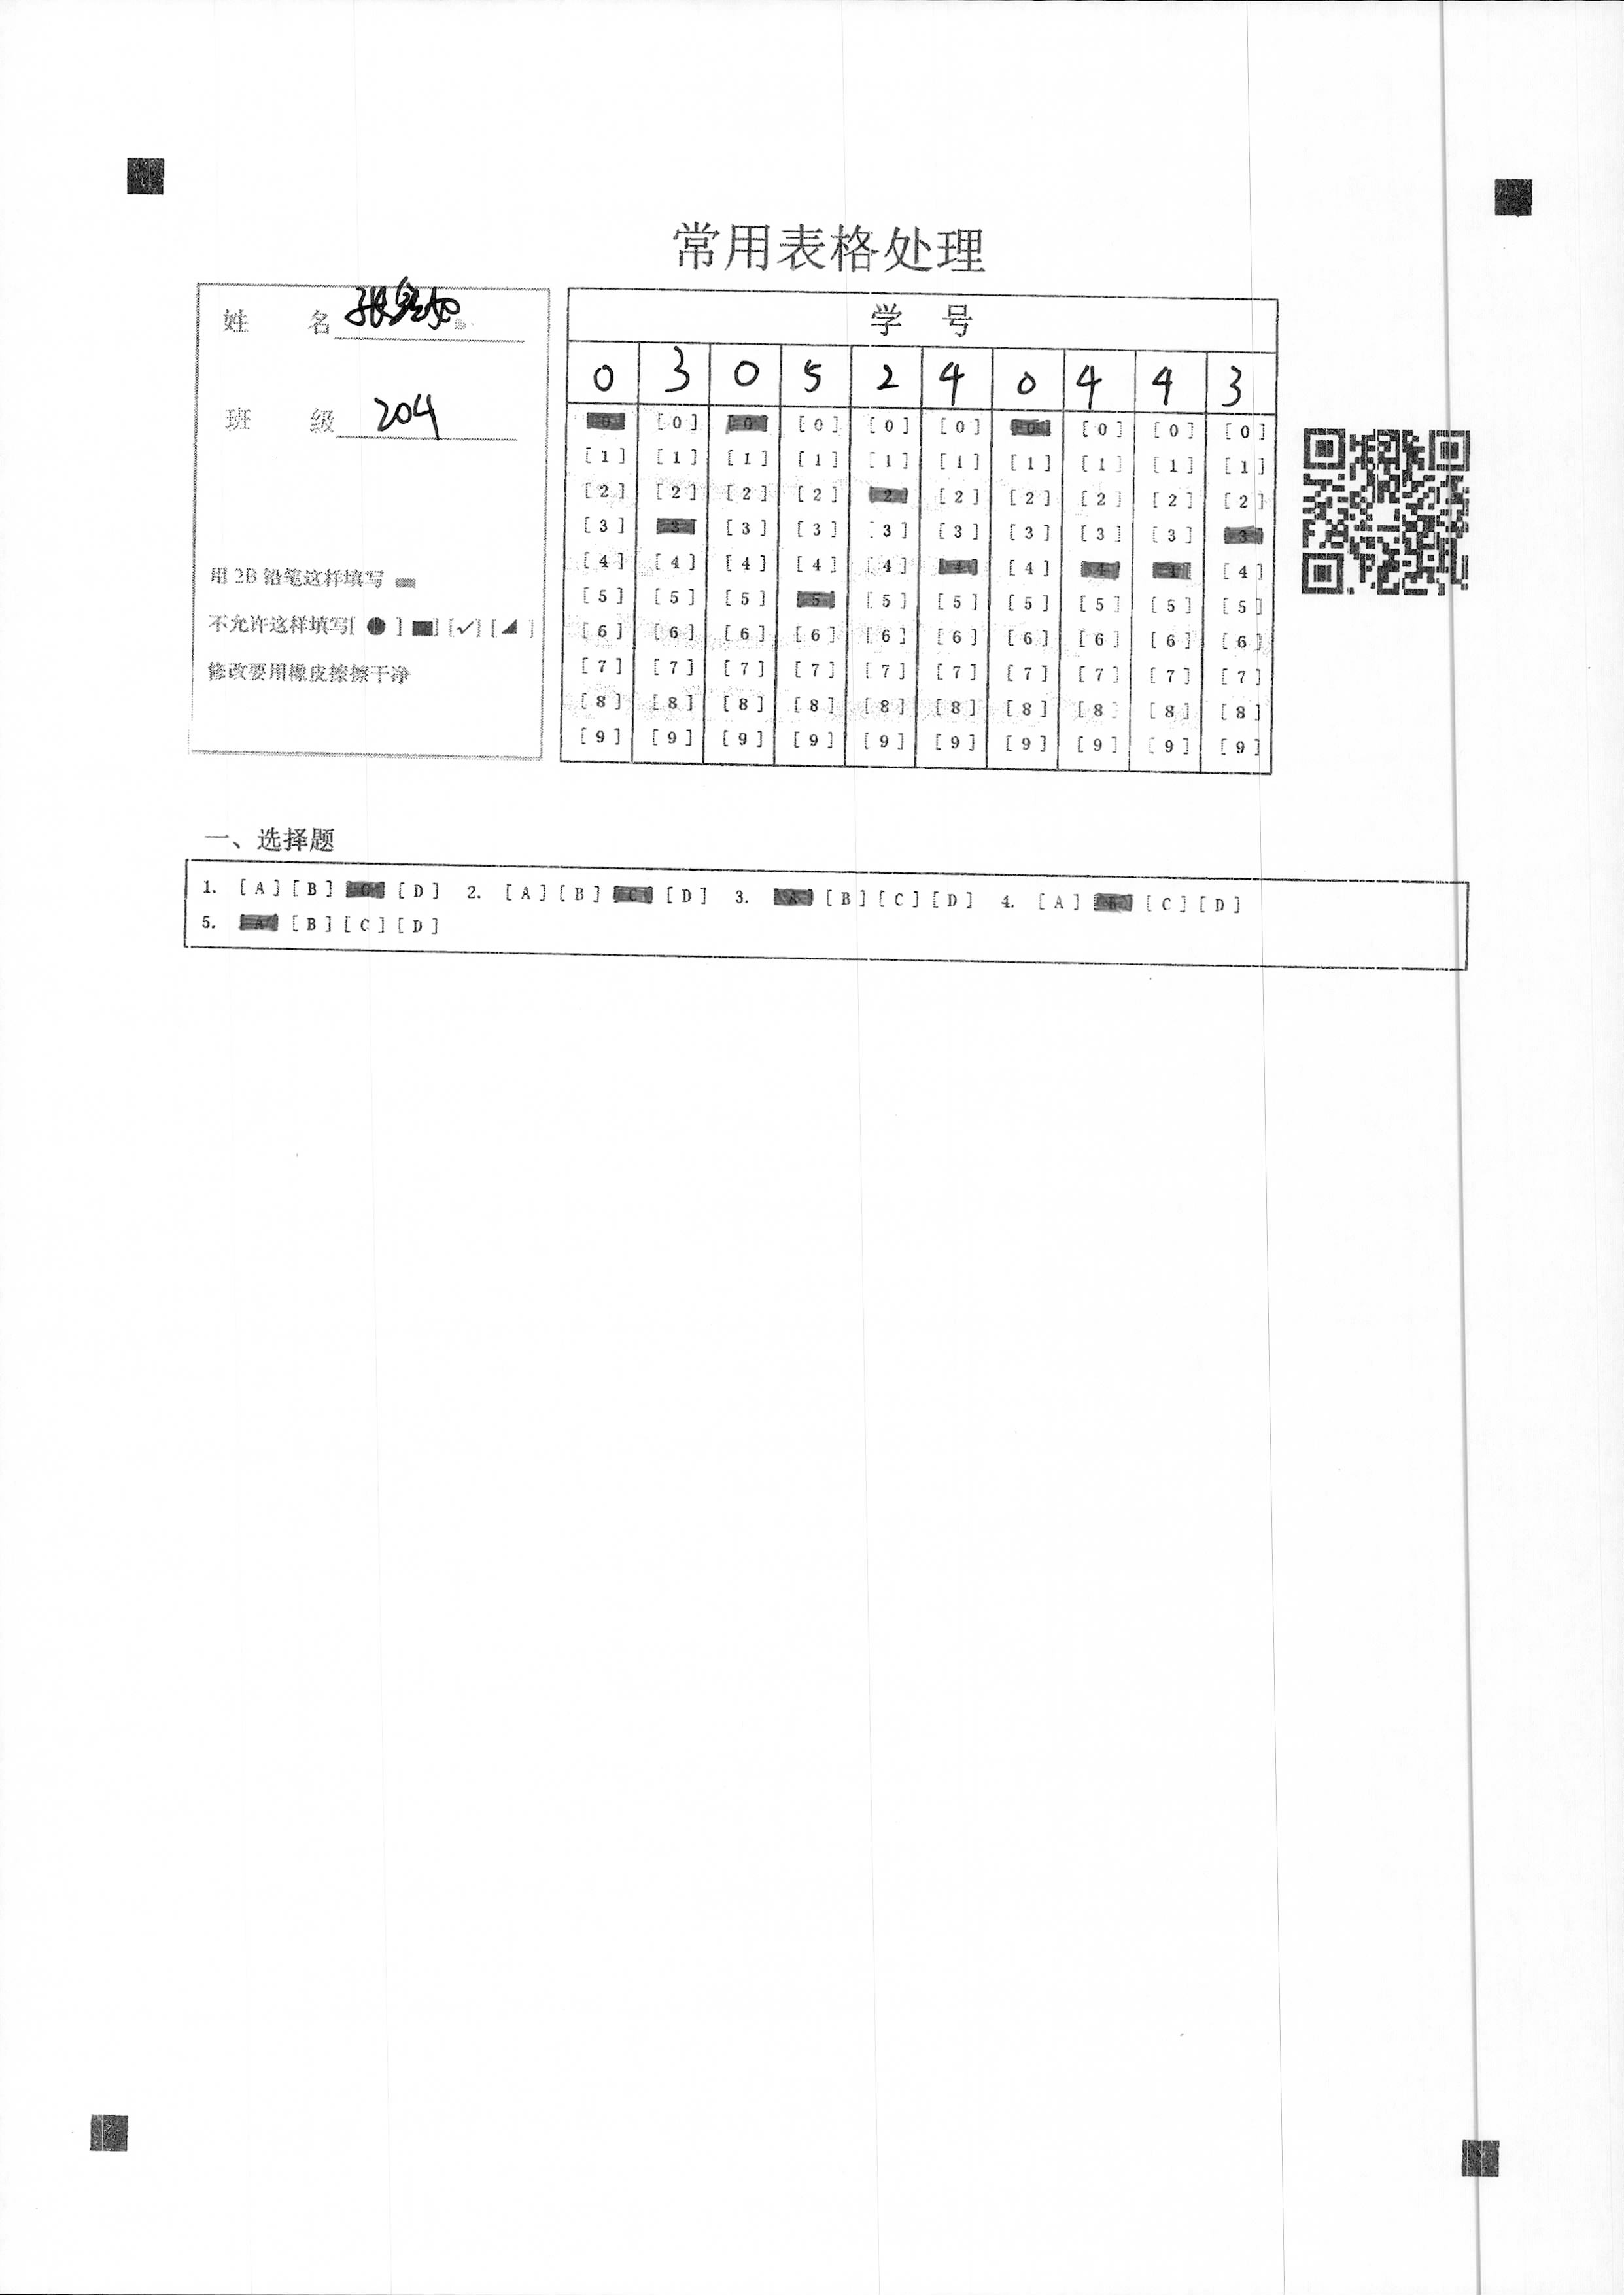 常用表格处理
姓 名
班 级 204
用 2B 铅笔这样填写
不允许这样填写[ ● ] ■] [✓] [◢ ]
修改要用橡皮擦擦干净
学 号
0 3 0 5 2 4 0 4 4 3
[0] [0] [0] [0] [0] [0] [0] [0] [0] [0]
[1] [1] [1] [1] [1] [1] [1] [1] [1] [1]
[2] [2] [2] [2] [2] [2] [2] [2] [2] [2]
[3] [3] [3] [3] [3] [3] [3] [3] [3] [3]
[4] [4] [4] [4] [4] [4] [4] [4] [4] [4]
[5] [5] [5] [5] [5] [5] [5] [5] [5] [5]
[6] [6] [6] [6] [6] [6] [6] [6] [6] [6]
[7] [7] [7] [7] [7] [7] [7] [7] [7] [7]
[8] [8] [8] [8] [8] [8] [8] [8] [8] [8]
[9] [9] [9] [9] [9] [9] [9] [9] [9] [9]
一、选择题
1. [A] [B] [C] [D] 2. [A] [B] [C] [D] 3. [A] [B] [C] [D] 4. [A] [B] [C] [D]
5. [A] [B] [C] [D]